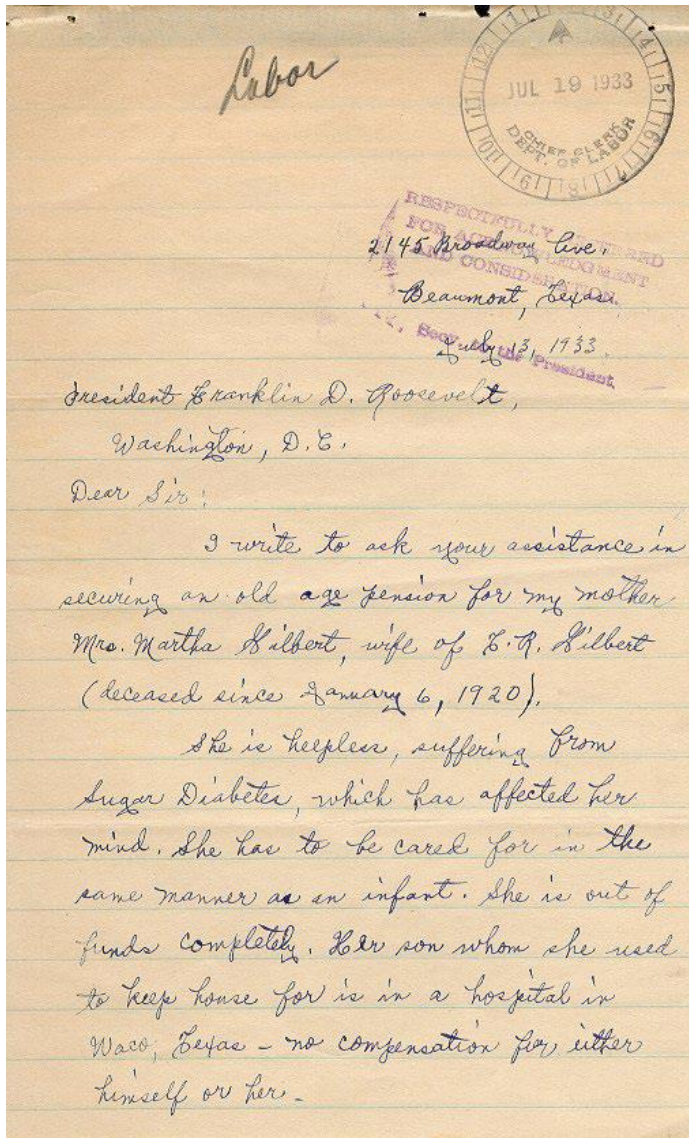 Labor
12 1 3 4 5 6 7 8 9 10 11
JUL 19 1933
CHIEF CLERK
DEPT. OF LABOR
RESPECTFULLY
FOR ACKNOWLEDGMENT
AND CONSIDERATION.
Secy. to the President.
2145 Broadway Ave.
Beaumont, Texas.
July 13, 1933.
President Franklin D. Roosevelt,
Washington, D.C.
Dear Sir:
I write to ask your assistance in
securing an old age pension for my mother
Mrs. Martha Gilbert, wife of F.R. Gilbert
(deceased since January 6, 1920).
She is helpless, suffering from
Sugar Diabetes, which has affected her
mind. She has to be cared for in the
same manner as an infant. She is out of
funds completely. Her son whom she used
to keep house for is in a hospital in
Waco, Texas – no compensation for either
himself or her –